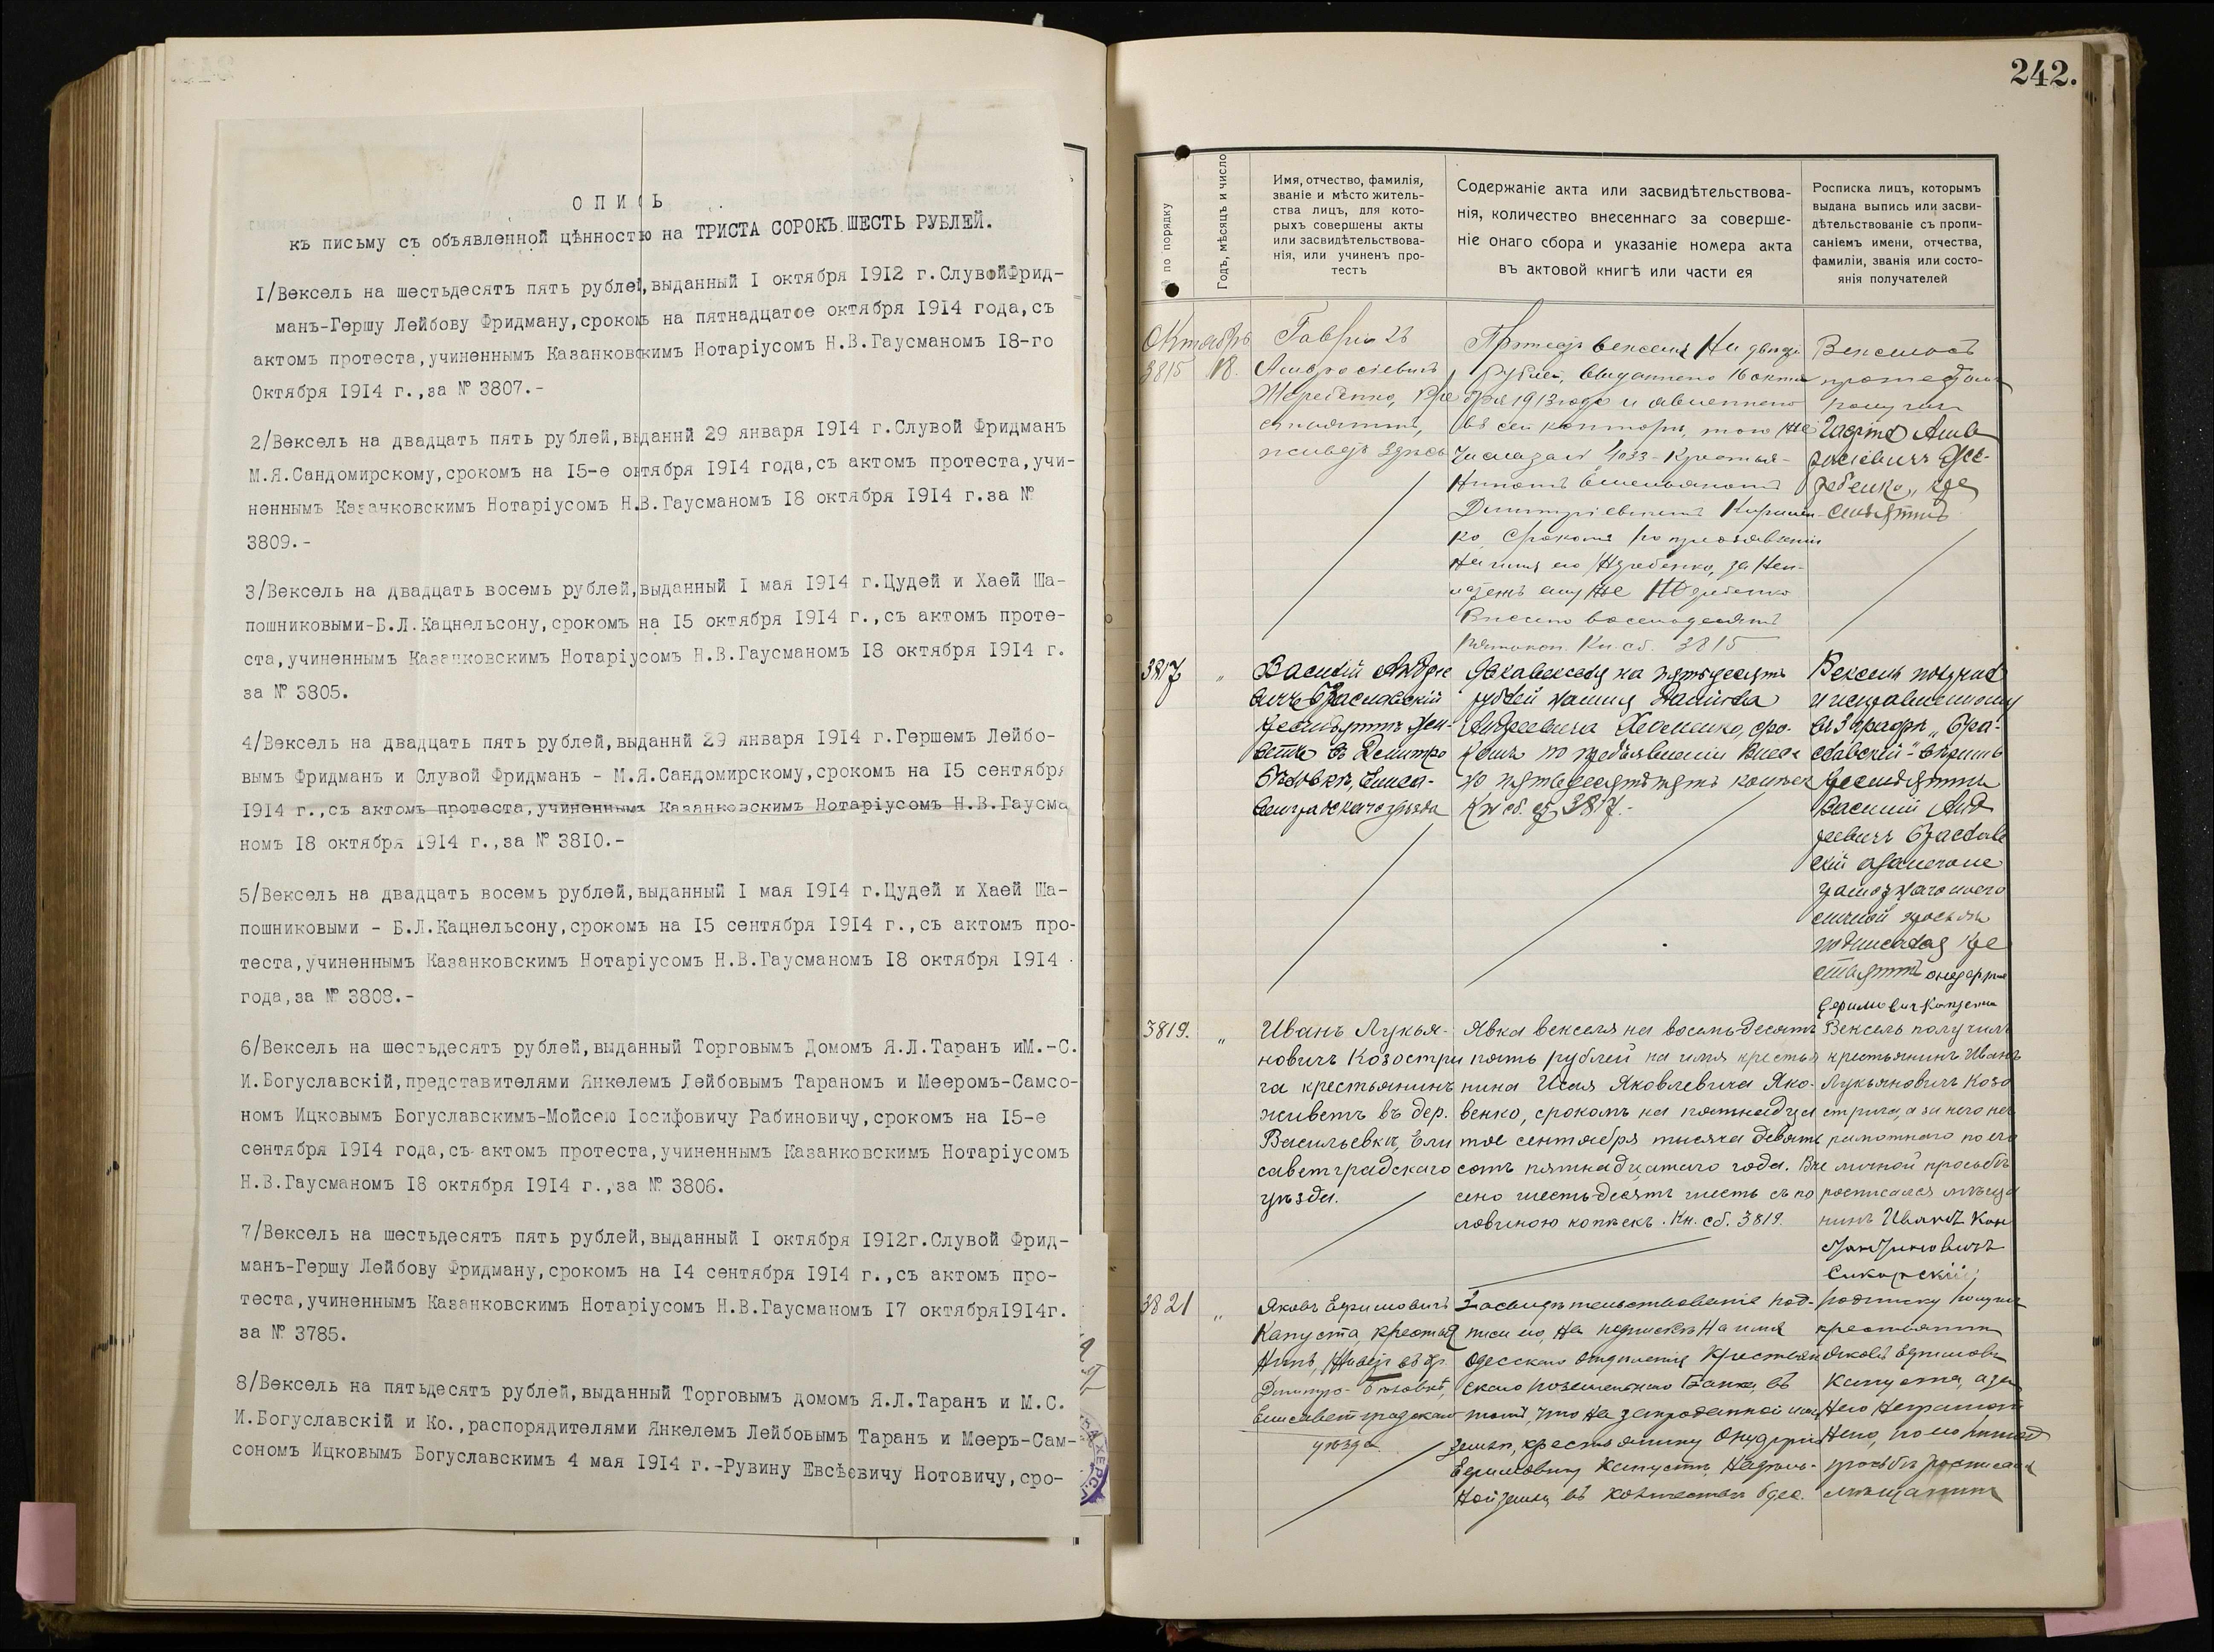 О П И С Ь
къ письму съ объявленной цѣнностью на ТРИСТА СОРОКЪ ШЕСТЬ РУБЛЕЙ.
I/Вексель на шестьдесятъ пять рублей,выданный I октября I9I2 г.СлувойФрид-
манъ-Гершу Лейбову Фридману,срокомъ на пятнадцатое октября I9I4 года,съ
актомъ протеста,учиненнымъ Казанковскимъ Нотаріусомъ Н.В.Гаусманомъ I8-го
Октября I9I4 г.,за № 3807.-
2/Вексель на двадцать пять рублей,выданнй 29 января I9I4 г.Слувой Фридманъ
М.Я.Сандомирскому,срокомъ на I5-е октября I9I4 года,съ актомъ протеста,учи-
неннымъ Казанковскимъ Нотаріусомъ Н.В.Гаусманомъ I8 октября I9I4 г.за №
3809.-
3/Вексель на двадцать восемь рублей,выданный I мая I9I4 г.Цудей и Хаей Ша-
пошниковыми-Б.Л.Кацнельсону,срокомъ на I5 октября I9I4 г.,съ актомъ проте-
ста,учиненнымъ Казанковскимъ Нотаріусомъ Н.В.Гаусманомъ I8 октября I9I4 г.
за № 3805.
4/Вексель на двадцать пять рублей,выданнй 29 января I9I4 г.Гершемъ Лейбо-
вымъ Фридманъ и Слувой Фридманъ - М.Я.Сандомирскому,срокомъ на I5 сентября
I9I4 г.,съ актомъ протеста,учиненнымъ Казанковскимъ Нотаріусомъ Н.В.Гаусма
номъ I8 октября I9I4 г.,за № 38I0.-
5/Вексель на двадцать восемь рублей,выданный I мая I9I4 г.Цудей и Хаей Ша-
пошниковыми - Б.Л.Кацнельсону,срокомъ на I5 сентября I9I4 г.,съ актомъ про-
теста,учиненнымъ Казанковскимъ Нотаріусомъ Н.В.Гаусманомъ I8 октября I9I4
года,за № 3808.-
6/Вексель на шестьдесятъ рублей,выданный Торговымъ Домомъ Я.Л.Таранъ иМ.-С.
И.Богуславскій,представителями Янкелемъ Лейбовымъ Тараномъ и Мееромъ-Самсо-
номъ Ицковымъ Богуславскимъ-Мойсею Іосифовичу Рабиновичу,срокомъ на I5-е
сентября I9I4 года,съ актомъ протеста,учиненнымъ Казанковскимъ Нотаріусомъ
Н.В.Гаусманомъ I8 октября I9I4 г.,за № 3806.
7/Вексель на шестьдесятъ пять рублей,выданный I октября I9I2г.Слувой Фрид-
манъ-Гершу Лейбову Фридману,срокомъ на I4 сентября I9I4 г.,съ актомъ про-
теста,учиненнымъ Казанковскимъ Нотаріусомъ Н.В.Гаусманомъ I7 октябряI9I4г.
за № 3785.
8/Вексель на пятьдесятъ рублей,выданный Торговымъ домомъ Я.Л.Таранъ и М.С.
И.Богуславскій и Ко.,распорядителями Янкелемъ Лейбовымъ Таранъ и Мееръ-Сам-
сономъ Ицковымъ Богуславскимъ 4 мая I9I4 г.-Рувину Евсѣевичу Нотовичу,сро-
ХЕРС
242.
по порядку
Годъ, мѣсяцъ и число
Имя, отчество, фамилія,
званіе и мѣсто житель-
ства лицъ, для кото-
рыхъ совершены акты
или засвидѣтельствова-
нія, или учиненъ про-
тестъ
Содержаніе акта или засвидѣтельствова-
нія, количество внесеннаго за соверше-
ніе онаго сбора и указаніе номера акта
въ актовой книгѣ или части ея
Росписка лицъ, которымъ
выдана выпись или засви-
дѣтельствованіе съ пропи-
саніемъ имени, отчества,
фамиліи, званія или состо-
янія получателей
Октябрь
3815 18.
Амвросіевичъ
Жеребенко, кре
живетъ здѣсь
Протестъ векселя на
рублей, выданнаго 16 октя
бря 1913 года и явленнаго
въ сей конторѣ, того же
числа за № 4033 - крестья-
ниномъ Емельяномъ
Димитріевичемъ Кириен
ко, срокомъ по предъявленіи
на имя его Жеребенко, за
ему же Жеребенко
Внесено восемьдесятъ
пять коп. Кн. сб. 3815
Вексель съ
протестомъ
получилъ
ребенко, кре
3817 „
Василій Андрее
вичъ Браславскій
крестьянинъ жи-
ветъ въ Дмитро
Бѣловкѣ, Елиса-
ветградскаго уѣзда
Явка векселя на пятьдесятъ
рублей на имя
Андреевича Хоменко, сро-
комъ по предъявленіи Внесе
но пятьдесятъ пять копѣек
Кн. сб. № 3817.
Вексель получилъ
и исправленному
въ 3 графѣ „Бра-
славскій" вѣрить
крестьянинъ
Василій Анд
реевичъ Браслав
скій а за него не
грамотнаго по его
личной просьбѣ
подписался кре
стьянинъ Онуфрій
Ефимовичъ Капуста
3819. „
Иванъ Лукья-
новичъ Козостри
га крестьянинъ
живетъ въ дер.
Васильевкѣ, Ели
саветградскаго
уѣзда.
Явка векселя на восемьдесятъ
пять рублей на имя крестья
нина Исая Яковлевича Яко-
венко, срокомъ на пятнадца
тое сентября тысяча девять
сотъ пятнадцатаго года. Вне
сено шестьдесятъ шесть съ по
ловиною копѣекъ. Кн. сб. 3819.
Вексель получилъ
крестьянинъ Иванъ
Лукьяновичъ Козо
стрига, а за него не
грамотнаго по его
личной просьбѣ
росписался мѣща
нинъ Иванъ Кон
стантиновичъ
Сикорскій
3821 „
Яковъ Ефимовичъ
Капуста, крестья
нинъ, живетъ въ др.
Дмитро-Бѣловкѣ,
Елисаветградскаго
уѣзда
Засвидѣтельствованіе под-
писи его, на подпискѣ на имя
Одесскаго отдѣленія Крестьян
скаго поземельнаго Банка, въ
томъ, что на запроданной имъ
землѣ, крестьянину Онуфрію
Ефимовичу Капустѣ, надѣль-
ной земли, въ количествѣ 6 дес.
Подписку получилъ
крестьянинъ
Яковъ Ефимовичъ
Капуста, а за
него неграмот
наго, по его личной
просьбѣ росписался
мѣщанинъ